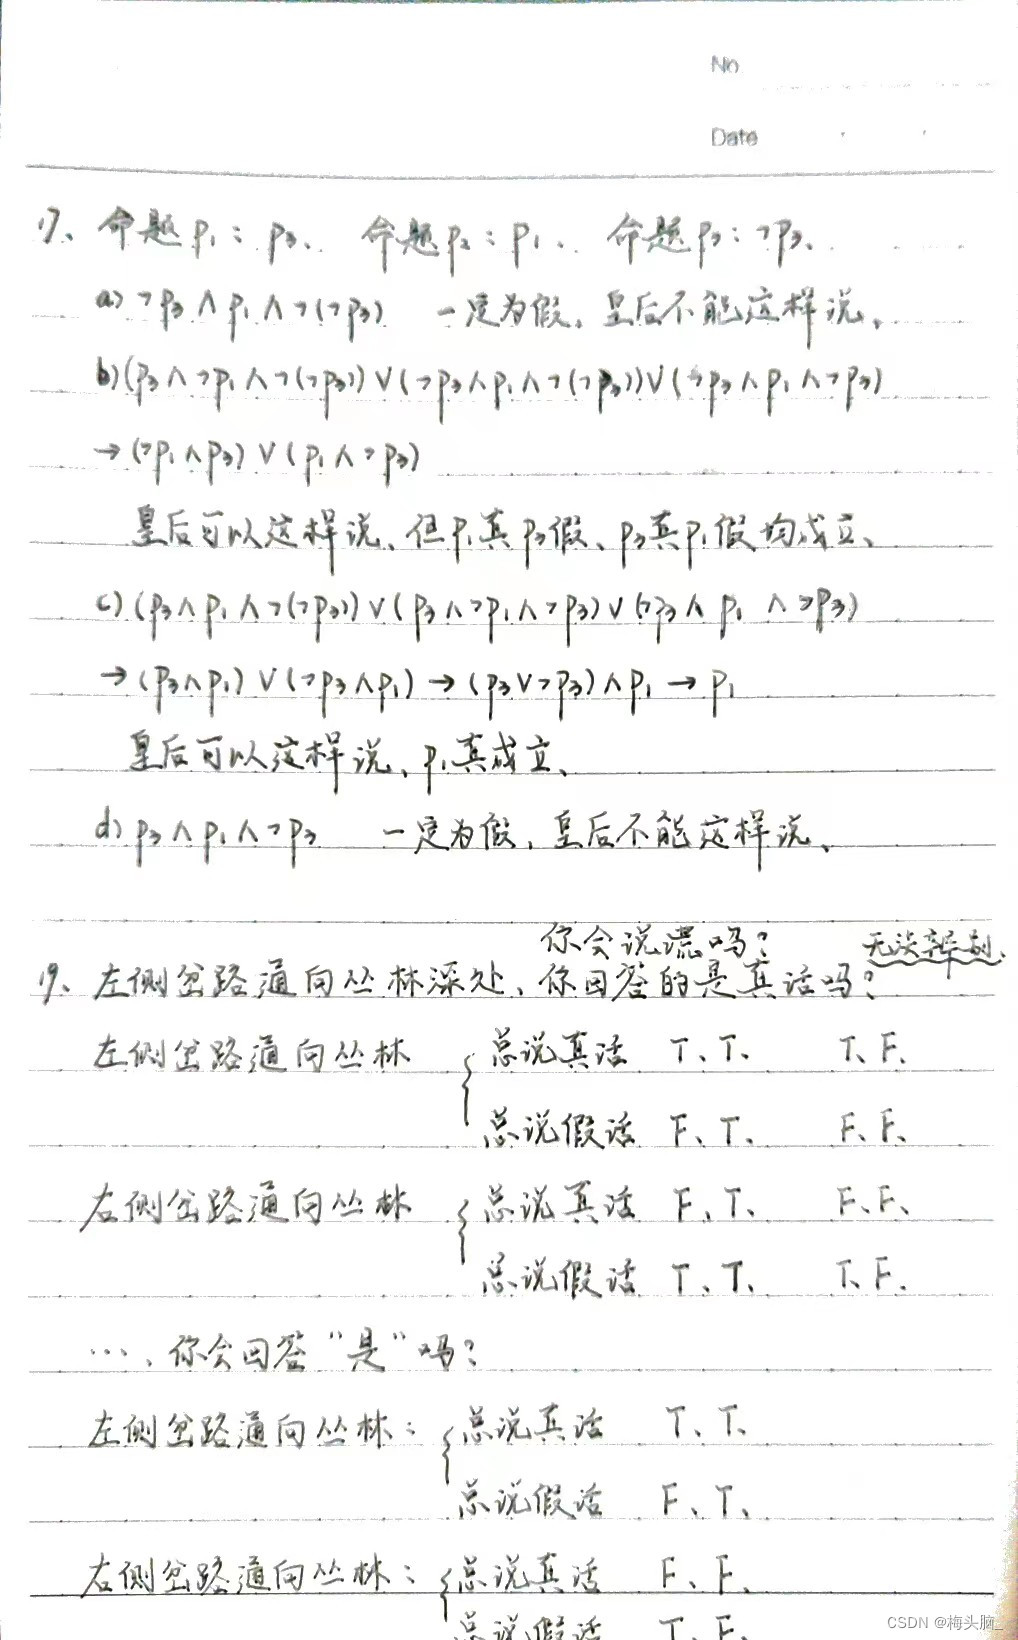 No
Date
17、命题p₁：p₃、 命题p₂：p₁、 命题p₃：¬p₃、
a) ¬p₃∧p₁∧¬(¬p₃) 一定为假，皇后不能这样说。
b) (p₃∧¬p₁∧¬(¬p₃))∨(¬p₃∧p₁∧¬(¬p₃))∨(¬p₃∧p₁∧¬p₃)
→(¬p₁∧p₃)∨(p₁∧¬p₃)
皇后可以这样说、但p₁真p₃假、p₃真p₁假均成立、
c) (p₃∧p₁∧¬(¬p₃))∨(p₃∧¬p₁∧¬p₃)∨(¬p₃∧p₁∧¬p₃)
→(p₃∧p₁)∨(¬p₃∧p₁)→(p₃∨¬p₃)∧p₁→p₁
皇后可以这样说、p₁真成立、
d) p₃∧p₁∧¬p₃ 一定为假，皇后不能这样说、
你会说谎吗？ 无法辨别、
19、左侧岔路通向丛林深处，你回答的是真话吗？
左侧岔路通向丛林 { 总说真话 T、T、 T、F、
总说假话 F、T、 F、F、
右侧岔路通向丛林 { 总说真话 F、T、 F、F、
总说假话 T、T、 T、F、
…，你会回答“是”吗？
左侧岔路通向丛林： { 总说真话 T、T、
总说假话 F、T、
右侧岔路通向丛林： { 总说真话 F、F、
总说假话 T、F、
CSDN @梅头脑_